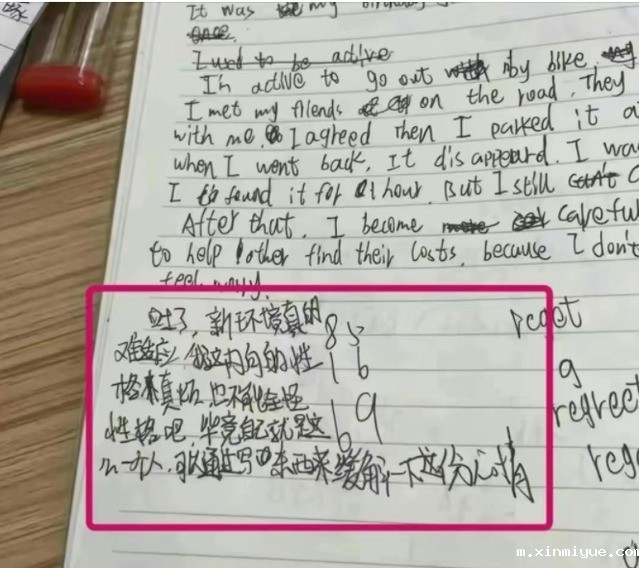 缘
It was my birthday
once.
I used to be active
In active to go out by bike.
I met my friends on the road. They
with me. I agreed Then I parked it a
when I went back, It disappeard. I wa
I found it for 1 hour. But I still can't c
After that, I become more careful
to help other find their costs, because I don't
feel
吐了,新环境真的 85
难适应,我这内向的性 16
格真坏,也不能全怪
性格吧,毕竟自己就是这 69
么一个人,可以通过写东西来缓解一下这份心情
reget
g
regreet
rege
m.xinmiyue.com